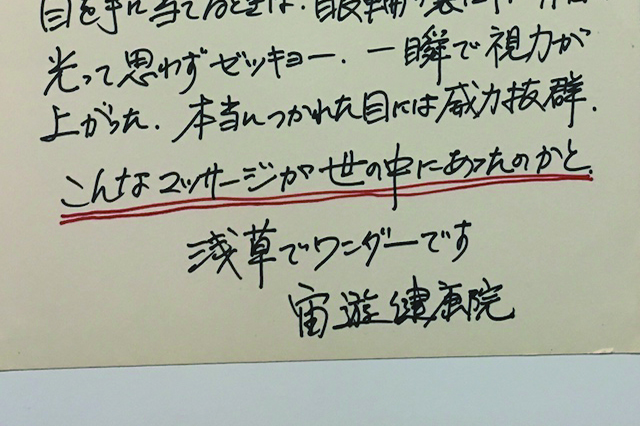 目を手に当てるときは、眼球の裏に
光って思わずゼッキョー. 一瞬で視力が
上がった. 本当につかれた目には威力抜群.
こんなマッサージが世の中にあったのかと.
浅草でワンダーです
宙遊健康院